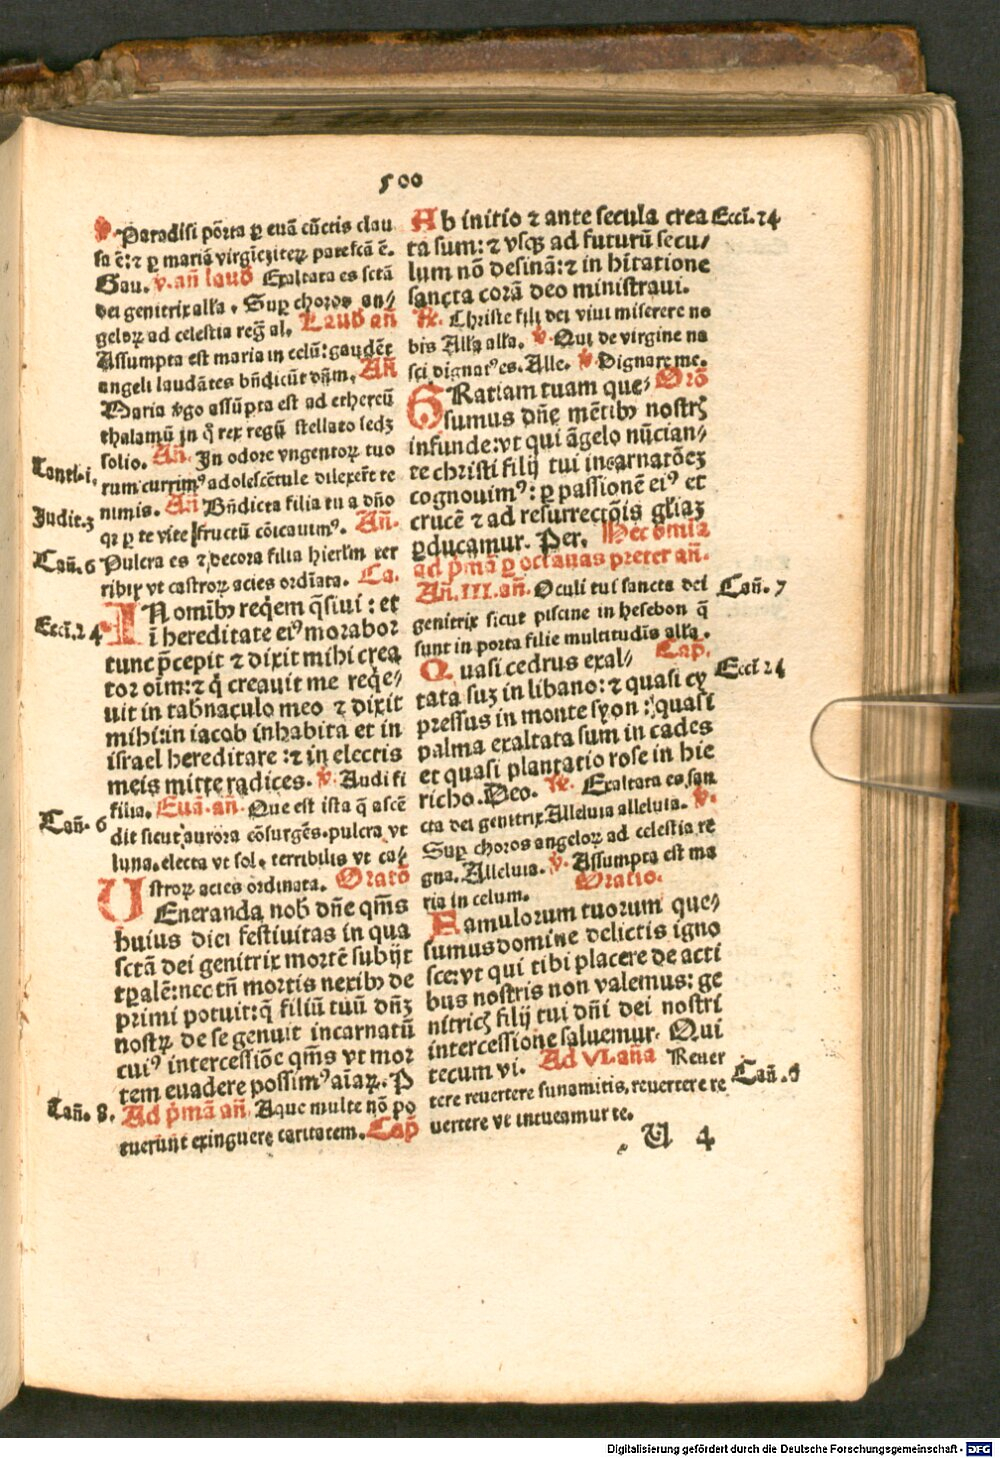 500
℣. Paradisi põrta ꝑ euã cũctis clau
sa ē: ⁊ ꝑ mariã virgĩe; iteꝝ patefcã ē.
Gau. v. añ laud Exaltata es sctã
dei genitrix alła. Sup̱ choros an⸗
geloꝝ ad celestia reg̃ al. Laud añ
Assumpta est maria in celũ: gaudẽt
angeli laudãtes bñdicũt dñm. Añ
Maria ỽgo assũpta est ad ethereũ
thalamũ jn q̃ rex regũ stellato sedꝫ
solio. Añ. In odore vngentoꝝ tuo
Canti. i.
rum currimꝰ adolescẽtule dilexer̃t te
nimis. Añ Bñdicta filia tu a dño
Judit. 3
qꝛ ꝑ te vite fructũ cõicauimꝰ. Añ.
Cañ. 6 Pulcra es ⁊ decora filia hierłm ter
ribix vt castroꝝ acies ordĩata. Ca.
IN omĩbꝰ req̃em q̃siui: et
Eccĩ. 24
ĩ hereditate eiꝰ morabor
tunc p̃cepit ⁊ dixit mihi crea
tor oĩm: ⁊ q̃ creauit me req̃e⸗
uit in tabnaculo meo ⁊ dixit
mihi: in iacob inhabita et in
israel hereditare: ⁊ in electis
meis mitte radices. ℣. Audi fi
filia. Euã. añ. Que est ista q̃ ascẽ
Cañ. 6
dit sicut aurora cõsurgẽs. pulcra vt
luna. electa vt sol. terribilis vt ca⸗
stroꝝ acies ordinata. Oratõ
VEneranda nob̃ dñe q̃ms
huius diei festiuitas in qua
sctã dei genitrix mortẽ subijt
tp̱alẽ: nec tñ mortis nexibꝰ de
primi potuit: q̃ filiũ tuũ dñꝫ
nostꝝ de se genuit incarnatũ
cuiꝰ intercessiõe q̃ms vt mor
tem euadere possimꝰ aĩaꝝ. P̱
Cañ. 8. Ad p̃mã añ. Aque multe nõ po
tuerunt exinguere caritatem. Cap̃
Ab initio ⁊ ante secula crea Eccĩ. 24
ta sum: ⁊ vsqꝫ ad futurũ secu⸗
lum nõ desinã: ⁊ in hĩtatione
sancta corã deo ministraui.
℟. Christe fili dei viui miserere no
bis Alła alła. ℣. Qui de virgine na
sci dignatꝰ es. Alle. ℣. Dignare me.
GRatiam tuam que⸗ Orõ
sumus dñe mẽtibꝰ nostrꝭ
infunde: vt qui ãgelo nũcian⸗
te christi filij tui incarnatõeꝫ
cognouimꝰ: ꝑ passionẽ eiꝰ et
crucẽ ⁊ ad resurrectõis głiaꝫ
ꝑducamur. Per. Hec omĩa
ad p̃mã ꝑ octauas preter añ.
Añ. III. añ. Oculi tui sancta dei Cañ. 7
genitrix sicut piscine in hesebon q̃
sunt in porta filie multitudĩs alła.
Quasi cedrus exal⸗ Cap.
Eccĩ 24
tata suꝫ in libano: ⁊ quasi cy
pressus in monte syon: quasi
palma exaltata sum in cades
et quasi plantatio rose in hie
richo. Deo. ℟. Exaltata es san
cta dei genitrix Alleluia alleluia. ℣.
Sup̱ choros angeloꝝ ad celestia re
gna. Alleluia. ℣. Assumpta est ma
ria in celum. Oratio.
Famulorum tuorum que⸗
sumus domine delictis igno
sce: vt qui tibi placere de acti
bus nostris non valemus: ge
nitricꝭ filij tui dñi dei nostri
intercessione saluemur. Qui
tecum vi. Ad VI. aña Reuer
Cañ. 6
tere reuertere sunamitis. reuertere re
uertere vt intueamur te.
U 4
Digitalisierung gefördert durch die Deutsche Forschungsgemeinschaft - DFG